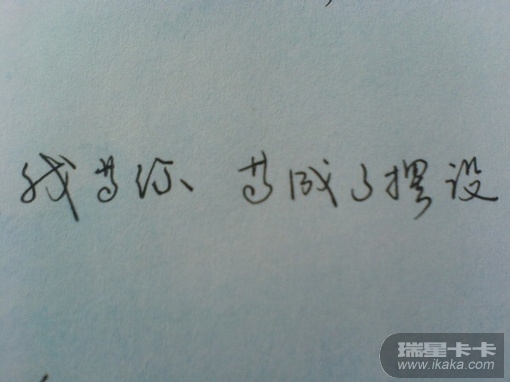 我等你、等成了摆设
瑞星卡卡
www.ikaka.com